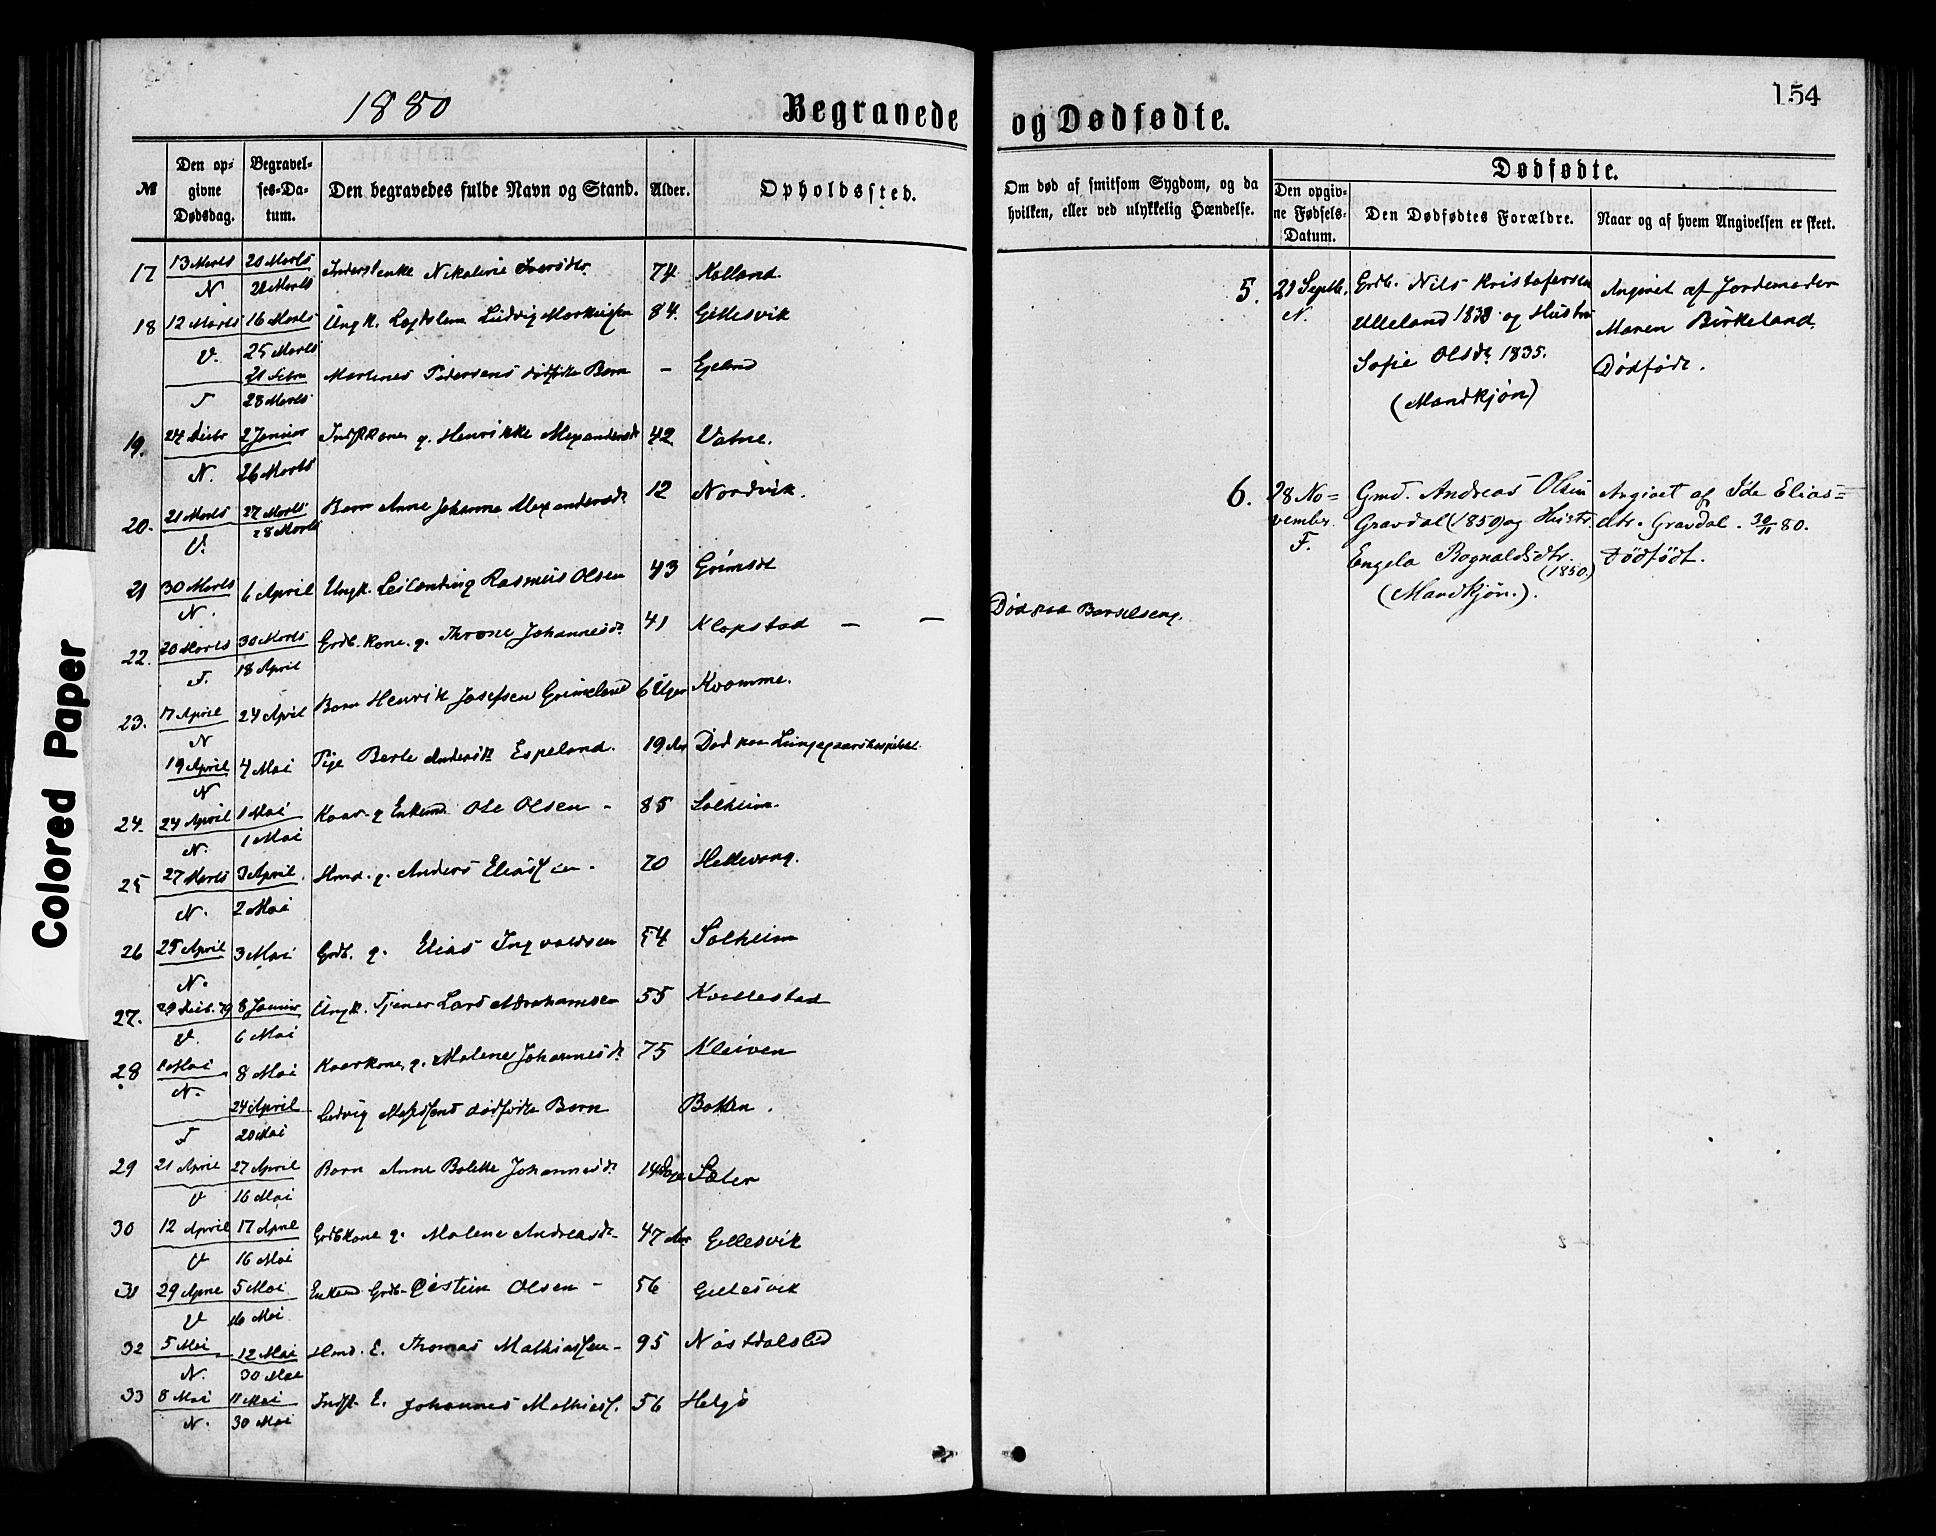 1880 Begravede og Dødfødte. 154
№ Den opgivne Dødsdag. Begravelses-Datum. Den begravedes fulde Navn og Stand. Alder. Opholdssted.
Om død af smitsom Sygdom, og da hvilken, eller ved ulykkelig Hændelse.
Dødfødte.
Den opgivne Fødsels-Datum. Den Dødfødtes Forældre. Naar og af hvem Angivelsen er skeet.
17 13 Marts 20 Marts Nikoline 74 Kolland
N 28 Marts
18 12 Marts 16 Marts Ungk. Lægdslem Ludvig 84. Gillesvik
V. 25 Marts
21 Febr Martines Pedersens dødfødte Barn - Egeland
F 28 Marts
19. 27 2 Januar kone g. Henrikke Alexandersdt 42 Vatne.
N. 26 Marts
20. 21 Marts 27 Marts Barn Anne Johanne Alexandersdt 12 Nordvik.
V. 28 Marts
21 30 Marts 6 April Ungk. Rasmus Olsen 43 Grimsdt
N.
22. 20 Marts 30 Marts Grdb. Kone. g. Throne Johannesdt 41 Klopstad — — Død paa Barselseng.
F. 18 April
23. 17 April 24 April Barn Henrik Josefsen Grimeland 6 Uger Kvamme.
N
19 April 4 Mai Pige Berte Andersdt Espeland. 19 Aar Død paa Lungegaardshospitalet
N
24. 24 April 1 Mai Kaar. g Enkemd Ole Olsen - 85 Solheim.
N. 1 Mai
25 27 Marts 3 April. Hmd. g. Anders Eliassen - 70 Hellevang.
N. 2 Mai
26 25 April 3 Mai Grdb. g. Elias Ingvaldsen 54 Solheim
N.
27. 29 79 8 Januar Ungk. Tjener Lars Abrahamsen 55 Kvellestad
V. 6 Mai
28 1 Mai 8 Mai Kaarkone, g. Malene Johannesdt 75 Kleiven
N.
24 April Ludvig dødfødte Barn Bakken.
F 20 Mai
29 21 April 27 April Barn Anne Bolette Johannesdt 14 Dage Sæter
V 16 Mai
30 12 April 17 April Grdbkone g. Malene Andreasdt- 47 Aar Gillesvik
V 16 Mai
31 29 April 5 Mai Enkemd Grdb. Øistein Olsen - 56 Gillesvik
V 16 Mai
32 5 Mai 12 Mai Hmd. E. Thomas Mathiassen - 95 Nøstdalslid
N. 30 Mai
33 8 Mai 11 Mai Indst. E. Johannes Mathiass. 56 Helgø
N. 30 Mai
5. 21 Septb. Grdb. Nils Kristofersen Angivet af Jordemoder
N. Ulleland 1838 og Hustru Maren Birkeland.
Sofie Olsdt 1835. Dødfødt.
(Mandkjøn)
6. 28 No= Gmd. Andreas Olsen Angivet af Ide Elias=
vember. Gravdal (1850) og Hustr. dtr. Gravdal. 30/11 80.
F. Engela Rognaldsdtr. Dødfødt.
(1850)
(Mandkjøn.).
Colored Paper